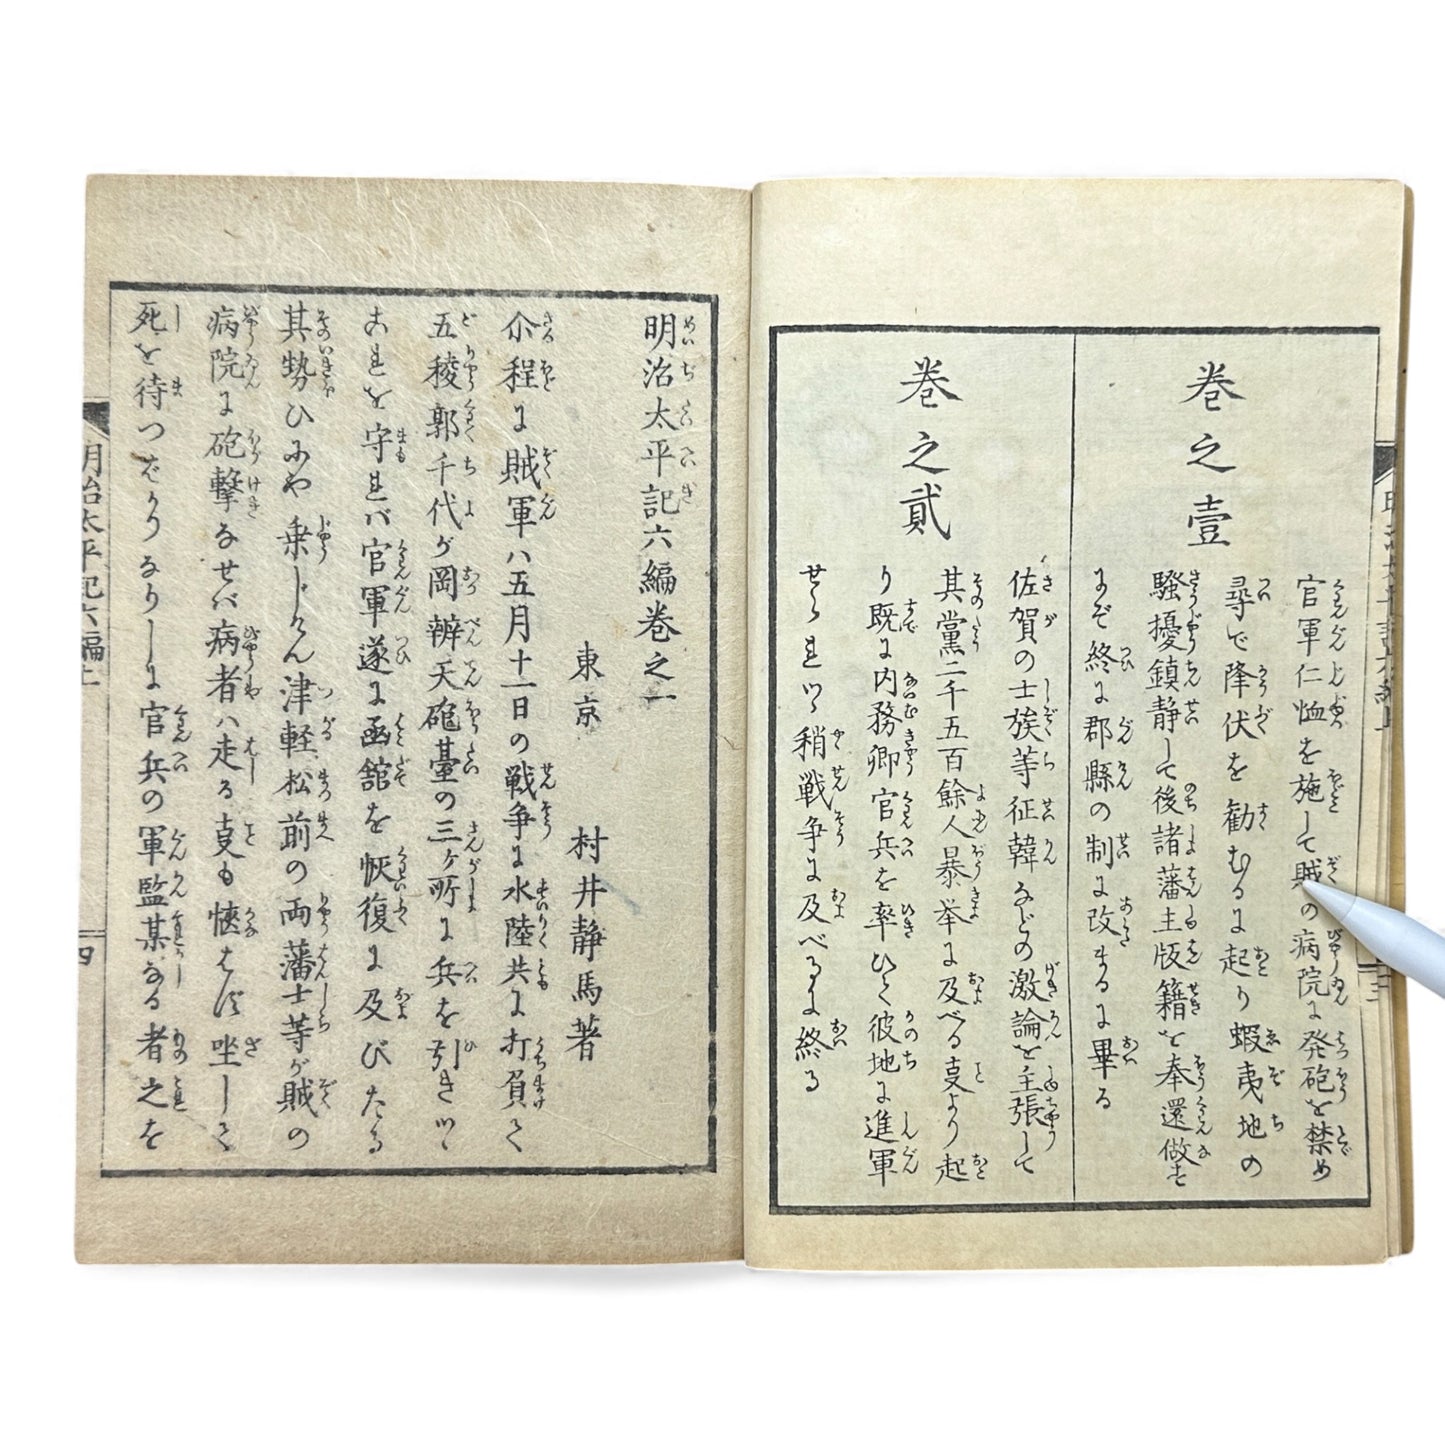 巻之壹
官軍仁恤を施して賊の病院に発砲を禁め
尋で降伏を勧むるに起り蝦夷地の
騒擾鎮静して後諸藩主版籍を奉還做せ
にぞ終に郡縣の制に改まるに畢る
巻之貳
佐賀の士族等征韓などの激論を主張して
其黨二千五百餘人暴挙に及べる支より起
り既に内務卿官兵を率ひて彼地に進軍
せられつゝ稍戦争に及べるに終る
明治太平記六編巻之一
東京 村井静馬著
尒程に賊軍ハ五月十一日の戦争に水陸共に打負て
五稜郭千代ガ岡辨天砲臺の三ヶ所に兵を引きつゝ
これを守れバ官軍遂に函舘を恢復に及びたる
其勢ひにや乗じけん津軽松前の両藩士等ガ賊の
病院に砲撃なせバ病者ハ走る支も愜はず坐して
死を待つばかりなりしに官兵の軍監某なる者之を
明治太平記六編上
四